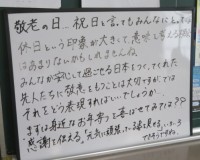 敬老の日。祝日と言ってもみんなにとって
休日という印象が大きくて、意味を考える機会
はあまりないかもしれませんね。
みんなが安心して過ごせる日本をつくってくれた
先人たちに敬意をもつことは大切ですが、では
それをどう表現すればいいでしょうか…
まずは身近なお年寄りを喜ばせてみては??
感謝を伝える。元気に頑張った姿を見せる。いっしょう